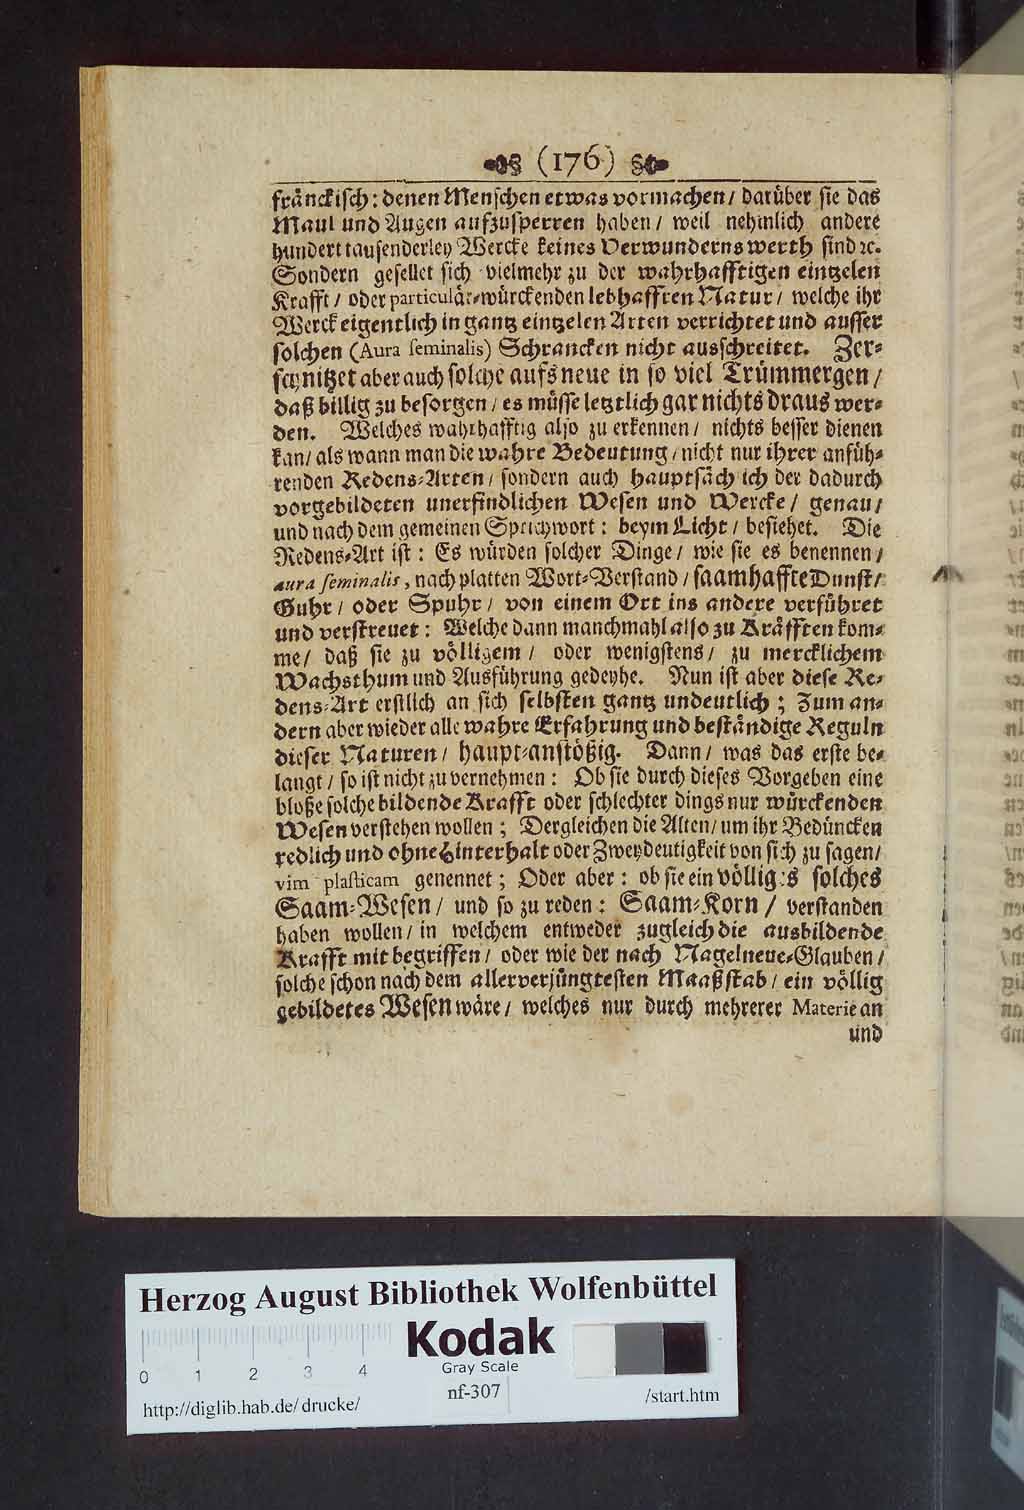 (176)
fränckisch: denen Menschen etwas vormachen / darüber sie das
Maul und Augen aufzusperren haben / weil nehmlich andere
hundert tausenderley Wercke keines Verwunderns werth sind ꝛc.
Sondern gesellet sich vielmehr zu der wahrhafftigen eintzelen
Krafft / oder particulär-würckenden lebhafften Natur / welche ihr
Werck eigentlich in gantz eintzelen Arten verrichtet und ausser
solchen (Aura seminalis) Schrancken nicht ausschreitet. Zer-
schnitzet aber auch solche aufs neue in so viel Trümmergen /
daß billig zu besorgen / es müsse letztlich gar nichts draus wer-
den. Welches wahrhafftig also zu erkennen / nichts besser dienen
kan / als wann man die wahre Bedeutung / nicht nur ihrer anfüh-
renden Redens-Arten / sondern auch hauptsächlich der dadurch
vorgebildeten unerfindlichen Wesen und Wercke / genau /
und nach dem gemeinen Sprichwort: beym Licht / besiehet. Die
Redens-Art ist: Es würden solcher Dinge / wie sie es benennen /
aura seminalis, nach platten Wort-Verstand / saamhaffte Dunst /
Guhr / oder Spuhr / von einem Ort ins andere verführet
und verstreuet: Welche dann manchmahl also zu Kräfften kom-
me / daß sie zu völligem / oder wenigstens / zu mercklichem
Wachsthum und Ausführung gedeyhe. Nun ist aber diese Re-
dens-Art erstlich an sich selbsten gantz undeutlich; Zum an-
dern aber wieder alle wahre Erfahrung und beständige Reguln
dieser Naturen / haupt-anstößig. Dann / was das erste be-
langt / so ist nicht zu vernehmen: Ob sie durch dieses Vorgeben eine
bloße solche bildende Krafft oder schlechter dings nur würckenden
Wesen verstehen wollen; Dergleichen die Alten / um ihr Bedüncken
redlich und ohne Hinterhalt oder Zweydeutigkeit von sich zu sagen /
vim plasticam genennet; Oder aber: ob sie ein völliges solches
Saam-Wesen / und so zu reden: Saam-Korn / verstanden
haben wollen / in welchem entweder zugleich die ausbildende
Krafft mit begriffen / oder wie der nach Nagelneue-Glauben /
solche schon nach dem allerverjüngtesten Maaßstab / ein völlig
gebildetes Wesen wäre / welches nur durch mehrerer Materie an
und
Herzog August Bibliothek Wolfenbüttel
Kodak
Gray Scale
0 1 2 3 4
nf-307
http://diglib.hab.de/drucke/ /start.htm